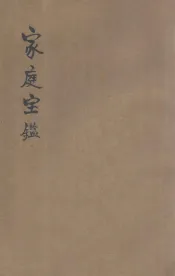 家庭宝鑑